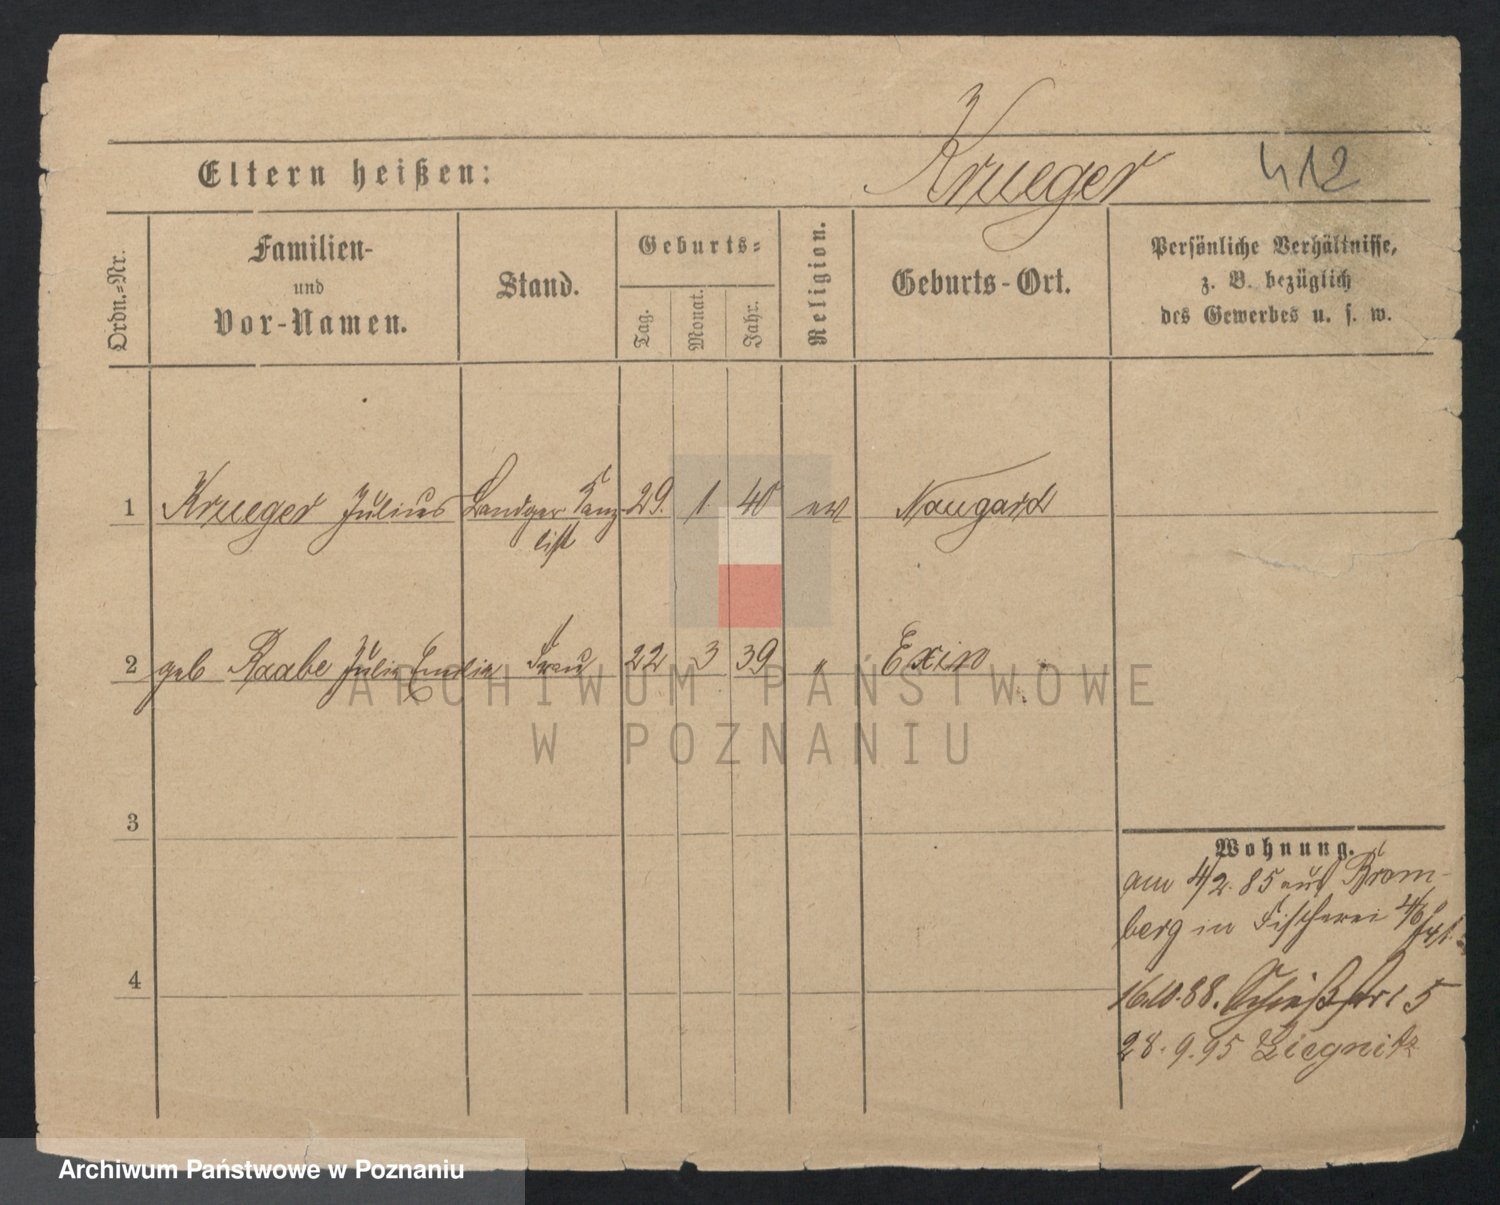 Krueger
412
Eltern heißen:
Ordn.-Nr.
Familien-
und
Vor-Namen.
Stand.
Geburts-
Tag.
Monat.
Jahr.
Religion.
Geburts-Ort.
Persönliche Verhältnisse,
z. B. bezüglich
des Gewerbes u. s. w.
1 Krueger Julius Landger. Kanz- 29. 1 40 ev Naugard
list
2 geb Raabe Julie Emilie Frau 22 3 39 " Exin
3
4
Wohnung.
am 4/2. 85 aus Brom-
berg in Fischerei 4/6
16.10.88. 5
28.9.95 Liegnitz
ARCHIWUM PAŃSTWOWE
W POZNANIU
Archiwum Państwowe w Poznaniu